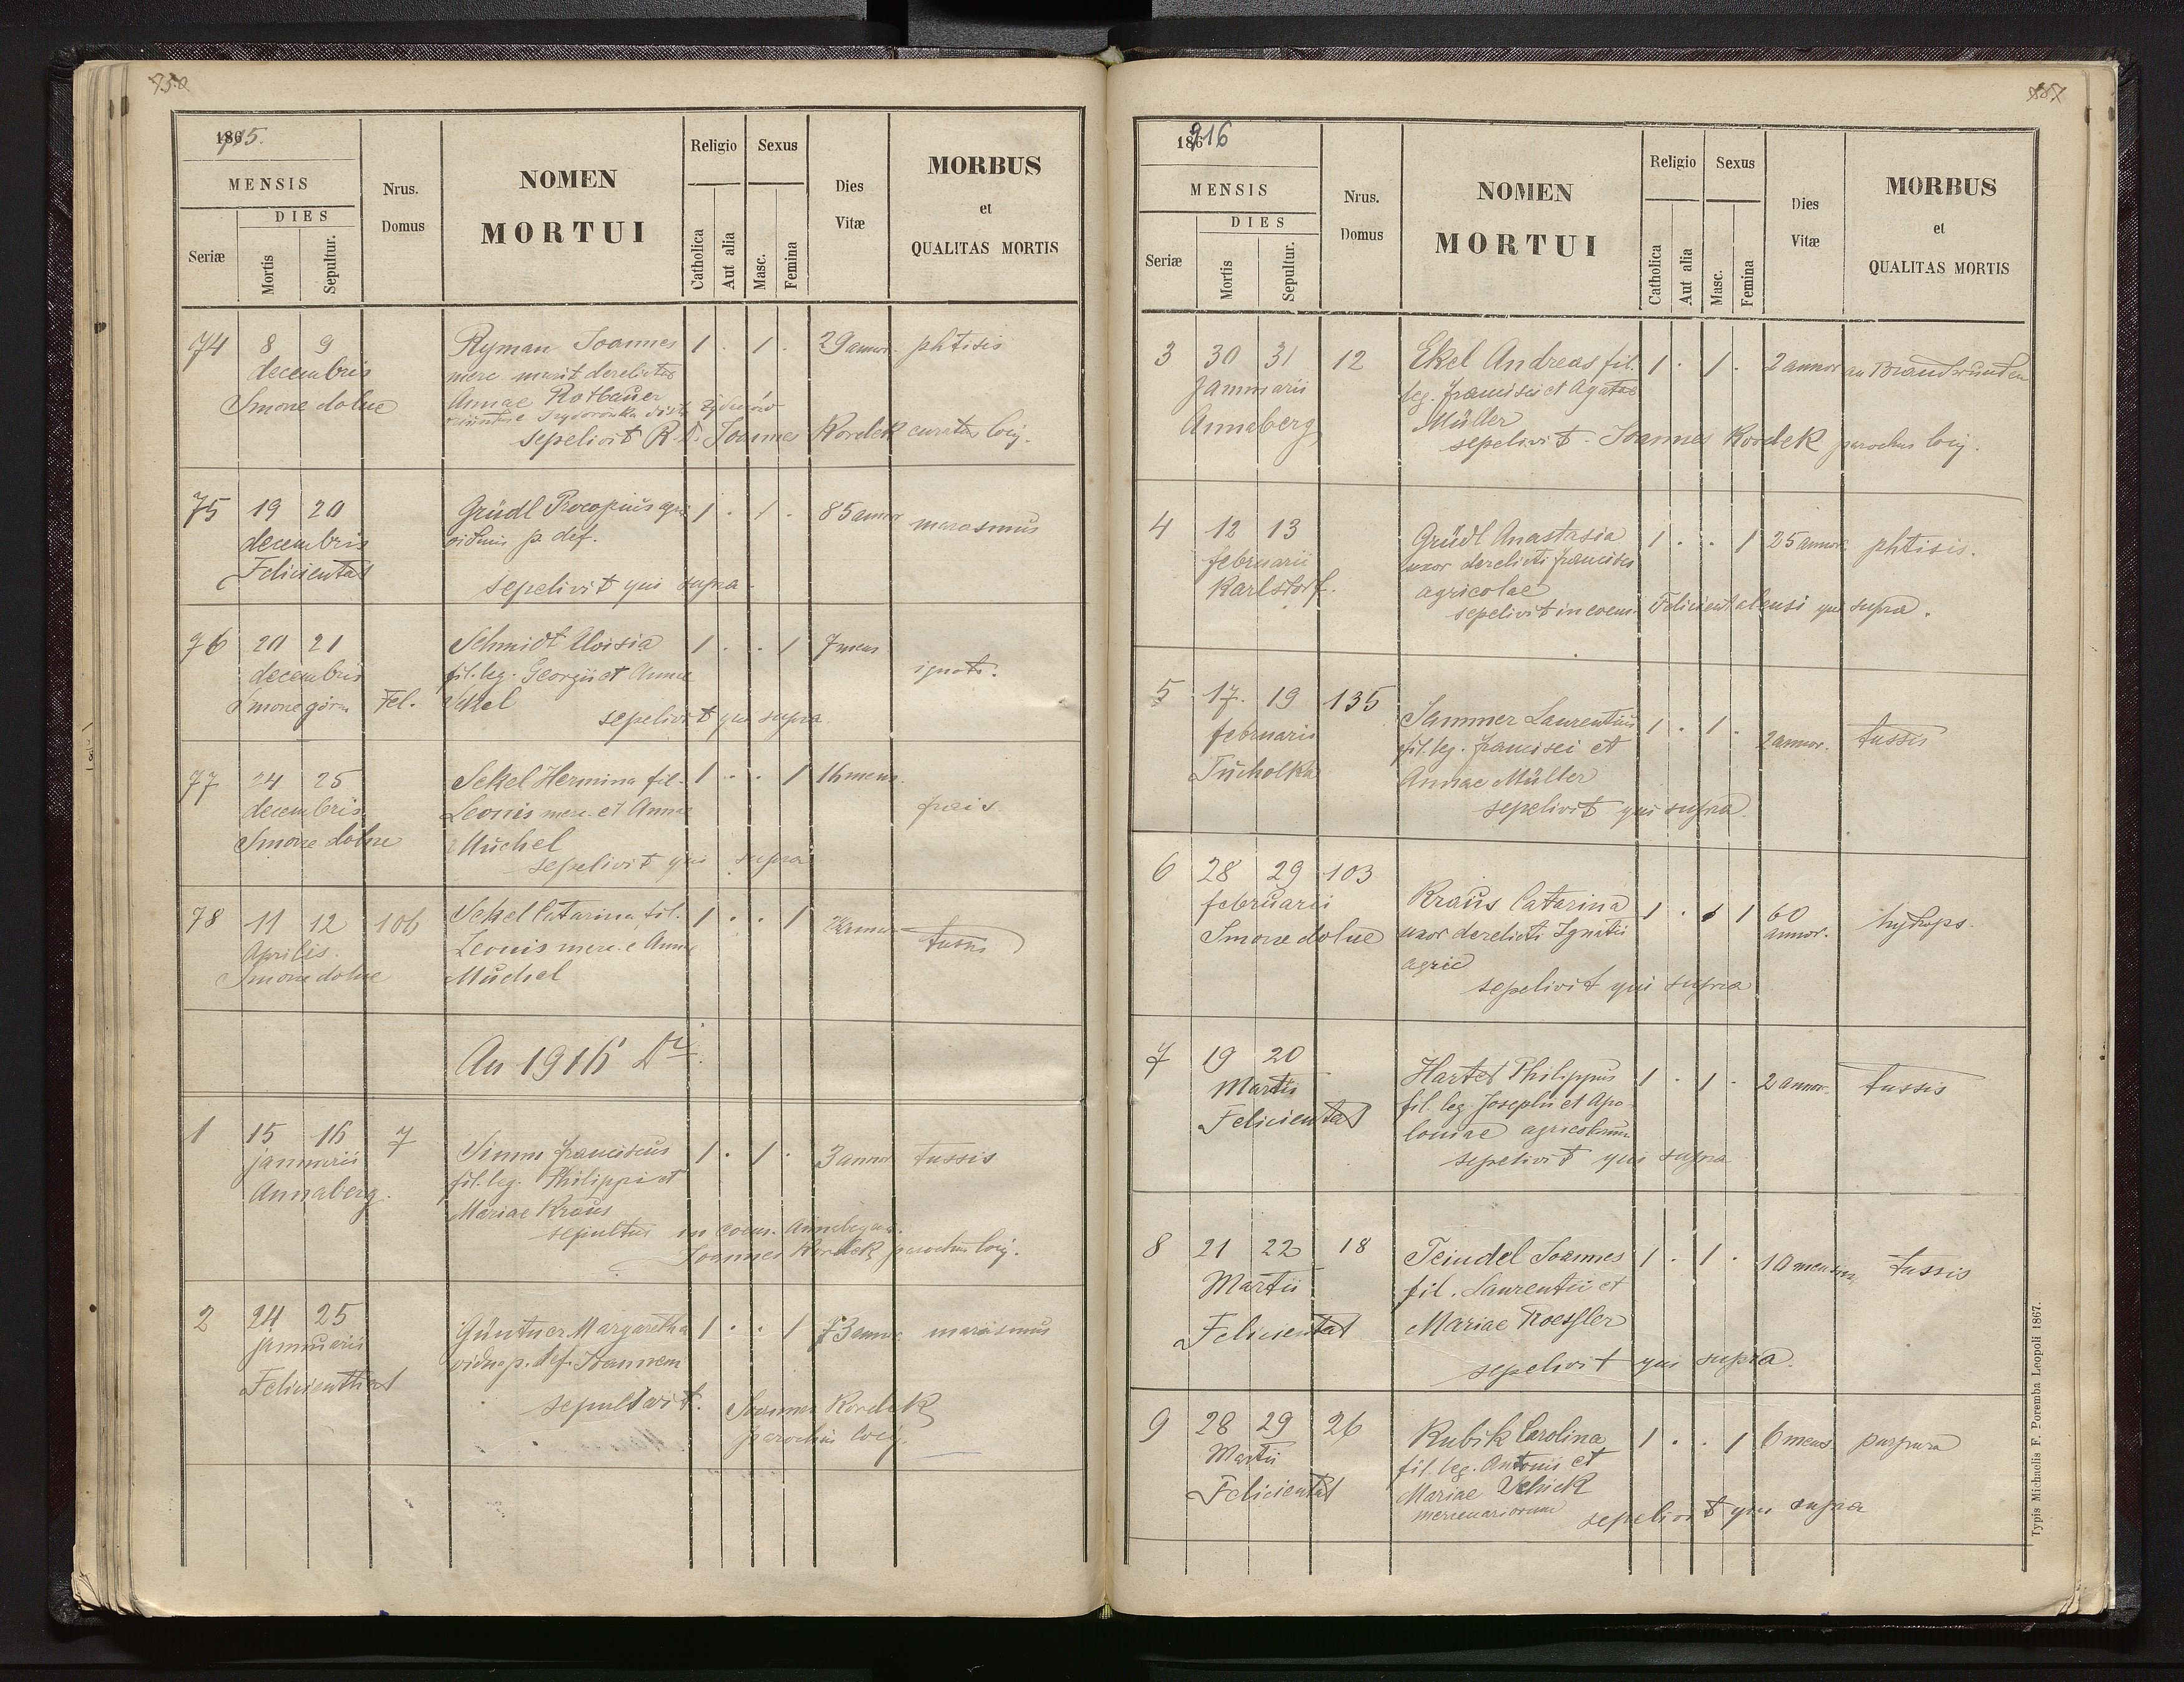 1915.
MENSIS
DIES
Seriæ
Mortis
Sepultur.
Nrus.
Domus
NOMEN
MORTUI
Religio
Catholica
Aut alia
Sexus
Masc.
Femina
Dies
Vitæ
MORBUS
et
QUALITAS MORTIS
74 8 9 Ryman Joannes 1 . 1 . 29 annor. phtisis
decembris merc. marit derelictus
Smorze dolne Annae Rotbauer
sepelivit R. D. Joannes Kordek curatus loci.
75 19 20 Gründl Procopius agri 1 . 1 . 85 annor marasmus
decembris viduus p. def.
Felicientat
sepelivit qui supra
76 20 21 Schmidt Aloisia 1 . . 1 7 mens
decembris fil. leg. Georgii et Annae ignot.
Smorze górn. Fel. Ekel
sepelivit qui supra.
77 24 25 Sekel Hermina fil. 1 . . 1 16 mens.
decembris Leonis merc. et Annae
Smorze dolne Muchel
sepelivit qui supra
78 11 12 106 Sekel Catarina fil. 1 . . 1 tussis
Aprilis Leonis merc. e Annae
Smorze dolne Muchel
An 1916 Di.
1 15 16 7 Simm Franciscus 1 . 1 . 3 annor tussis
januarii fil. leg. Philippi et
Annaberg. Mariae Kraus
sepultus in coem.
Joannes Kordek parochus loci.
2 24 25 Güntner Margaretha 1 . . 1 73 annor marasmus
januarii vidua p. def. Joannem
Felicienthal
sepultavit. Joannes Kordek
parochus loci.
1916
MENSIS
DIES
Seriæ
Mortis
Sepultur.
Nrus.
Domus
NOMEN
MORTUI
Religio
Catholica
Aut alia
Sexus
Masc.
Femina
Dies
Vitæ
MORBUS
et
QUALITAS MORTIS
3 30 31 12 Ekel Andreas fil. 1 . 1 . 2 annor an Brandwunden
Januarii leg. Francisci et Agatae
Annaberg Müller
sepelivit Joannes Kordek parochus loci.
4 12 13 Gründl Anastasia 1 . . 1 25 annor phtisis.
februarii uxor derelicti Francisci
Karlsdorf. agricolae
sepelivit in coem. Felicientalensi qui supra.
5 17. 19 135 Summer Laurentius 1 . 1 . 2 annor. tussis
februarii fil. leg. Francisci et
Tucholka Annae Müller
sepelivit qui supra.
6 28 29 103 Kraus Catarina 1 . 1 60 annor. hydrops.
februarii uxor derelicti Ignatii
Smorze dolne agric
sepelivit qui supra
7 19 20 Hartel Philippus 1 . 1 . 2 annor. tussis
Martii fil. leg. Josephi et Apo
Felicientat loniae agricolarum
sepelivit qui supra
8 21 22 18 Teindel Joannes 1 . 1 . 10 mensium tussis
Martii fil. Laurentii et
Felicientat Mariae Roessler
sepelivit qui supra.
9 28 29 26 Kubik Carolina 1 . . 1 6 mens purpura
Martii fil. leg. Antonii et
Felicientat Mariae
mercenariorum sepelivit qui supra
Typis Michaelis F. Poremba Leopoli 1867.